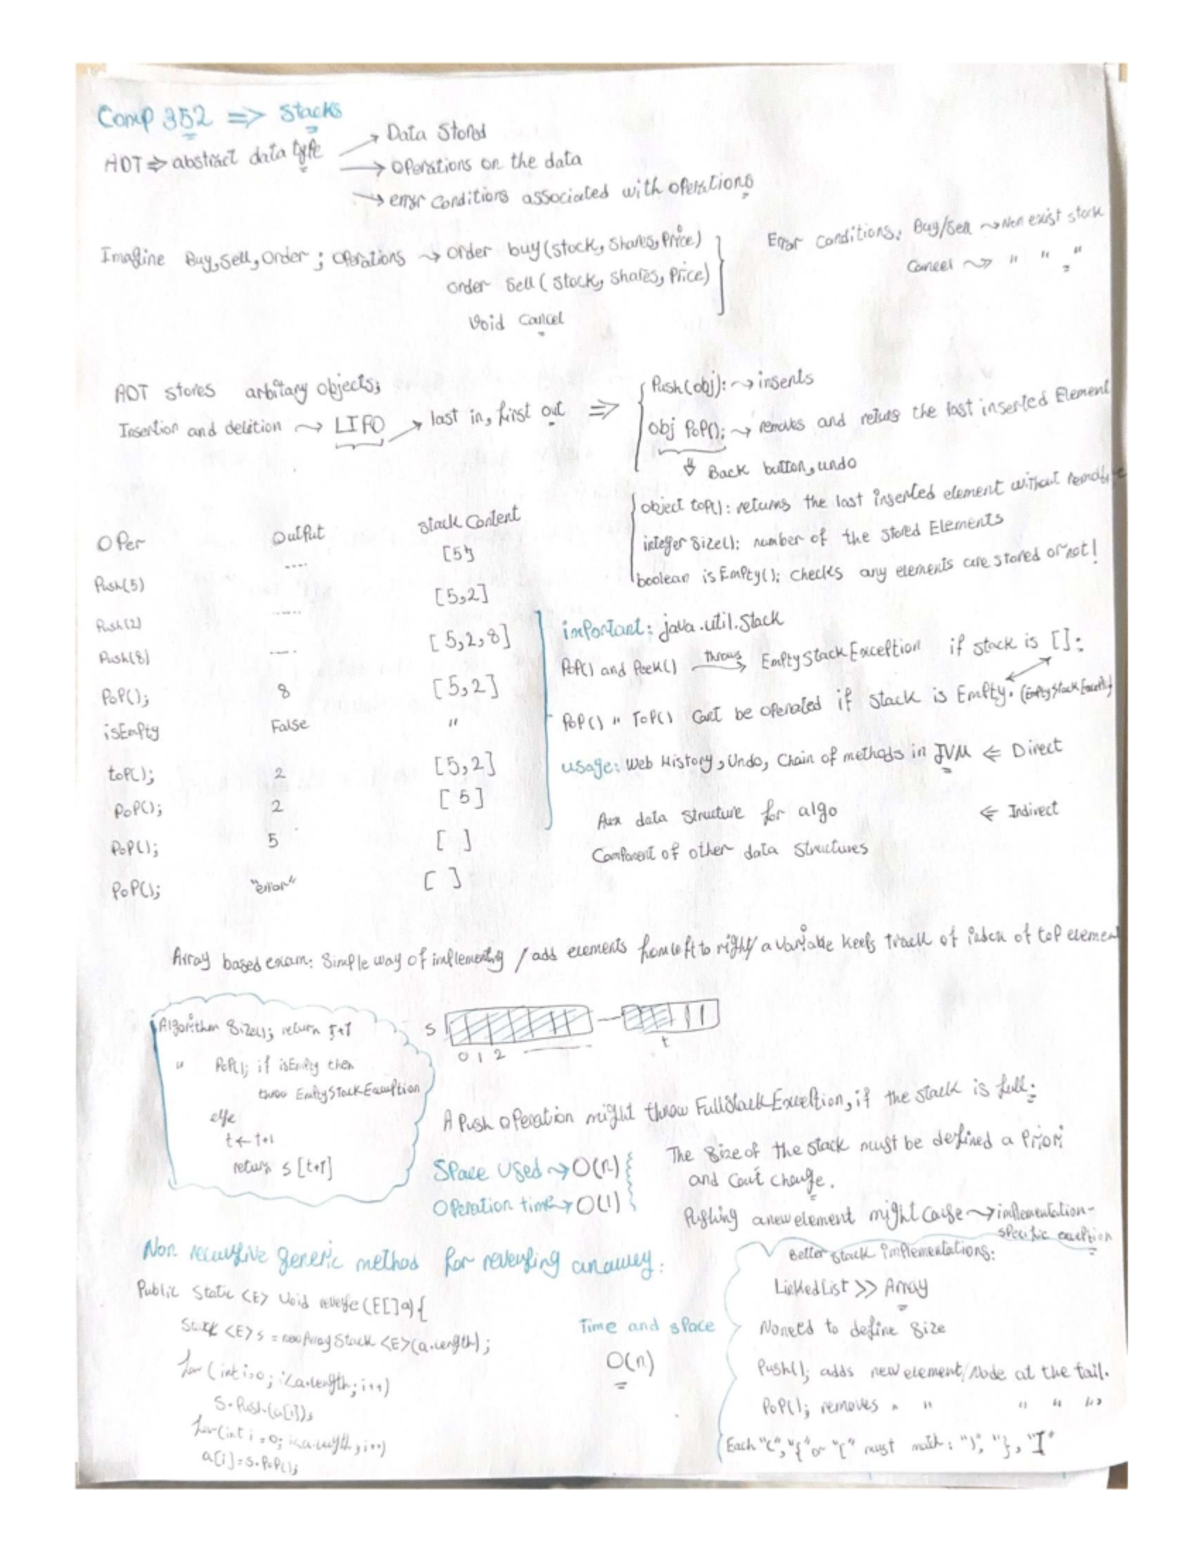 Comp 352 => Stacks
ADT => abstract data type → Data Stored
→ Operations on the data
→ error conditions associated with operations
Imagine Buy, Sell, Order ; Operations → order buy (stock, shares, Price)
order Sell ( stock, shares, Price)
Void Cancel
Error Conditions: Buy/Sell → Non exist stock
Cancel → " " "
ADT stores arbitary objects;
Insertion and deletion → LIFO → last in, first out =>
Push(obj): → inserts
obj PoP(); → removes and returs the last inserted Element
Back button, undo
object top(): returns the last inserted element without
integer Size(): number of the stored Elements
boolean isEmpty(); checks any elements are stored or not!
Oper Output Stack Content
Push(5) ---- [5]
Push(2) ---- [5,2]
Push(8) ---- [5,2,8]
PoP(); 8 [5,2]
isEmpty False "
toP(); 2 [5,2]
PoP(); 2 [5]
PoP(); 5 [ ]
PoP(); "error" [ ]
important: java.util.Stack
PoP() and Peek() throws → EmptyStackException if stack is []:
PoP() " ToP() Can't be operated if stack is Empty. (EmptyStackException)
usage: Web History, Undo, Chain of methods in JVM ← Direct
Aux data structure for algo ← Indirect
Component of other data structures
Array based exam: Simple way of implementing / add elements from left to right / a variable keeps track of index of top element
Algorithm Size(); return t+1
" PoP(); if isEmpty then
throw EmptyStackException
else
t ← t+1
return s [t+1]
S
0 1 2 t
A Push operation might throw FullStackException, if the stack is full:
Space Used → O(n)
Operation time → O(1)
The Size of the stack must be defined a Priori
and Can't change.
Pushing a new element might cause → implementation-
specific exception
Non recursive generic method for reversing an array:
Public Static <E> Void reverse (E[] a) {
Stack <E> s = new ArrayStack <E>(a.length);
for (int i=0; i<a.length; i++)
S.Push(a[i]);
for(int i=0; i<a.length; i++)
a[i]=S.PoP();
Time and space
O(n)
Better stack implementations:
LinkedList >> Array
No need to define Size
Push(); adds new element/Node at the tail.
PoP(); removes " " " " "
Each "(", "{" or "[" must match: ")", "}", "]"